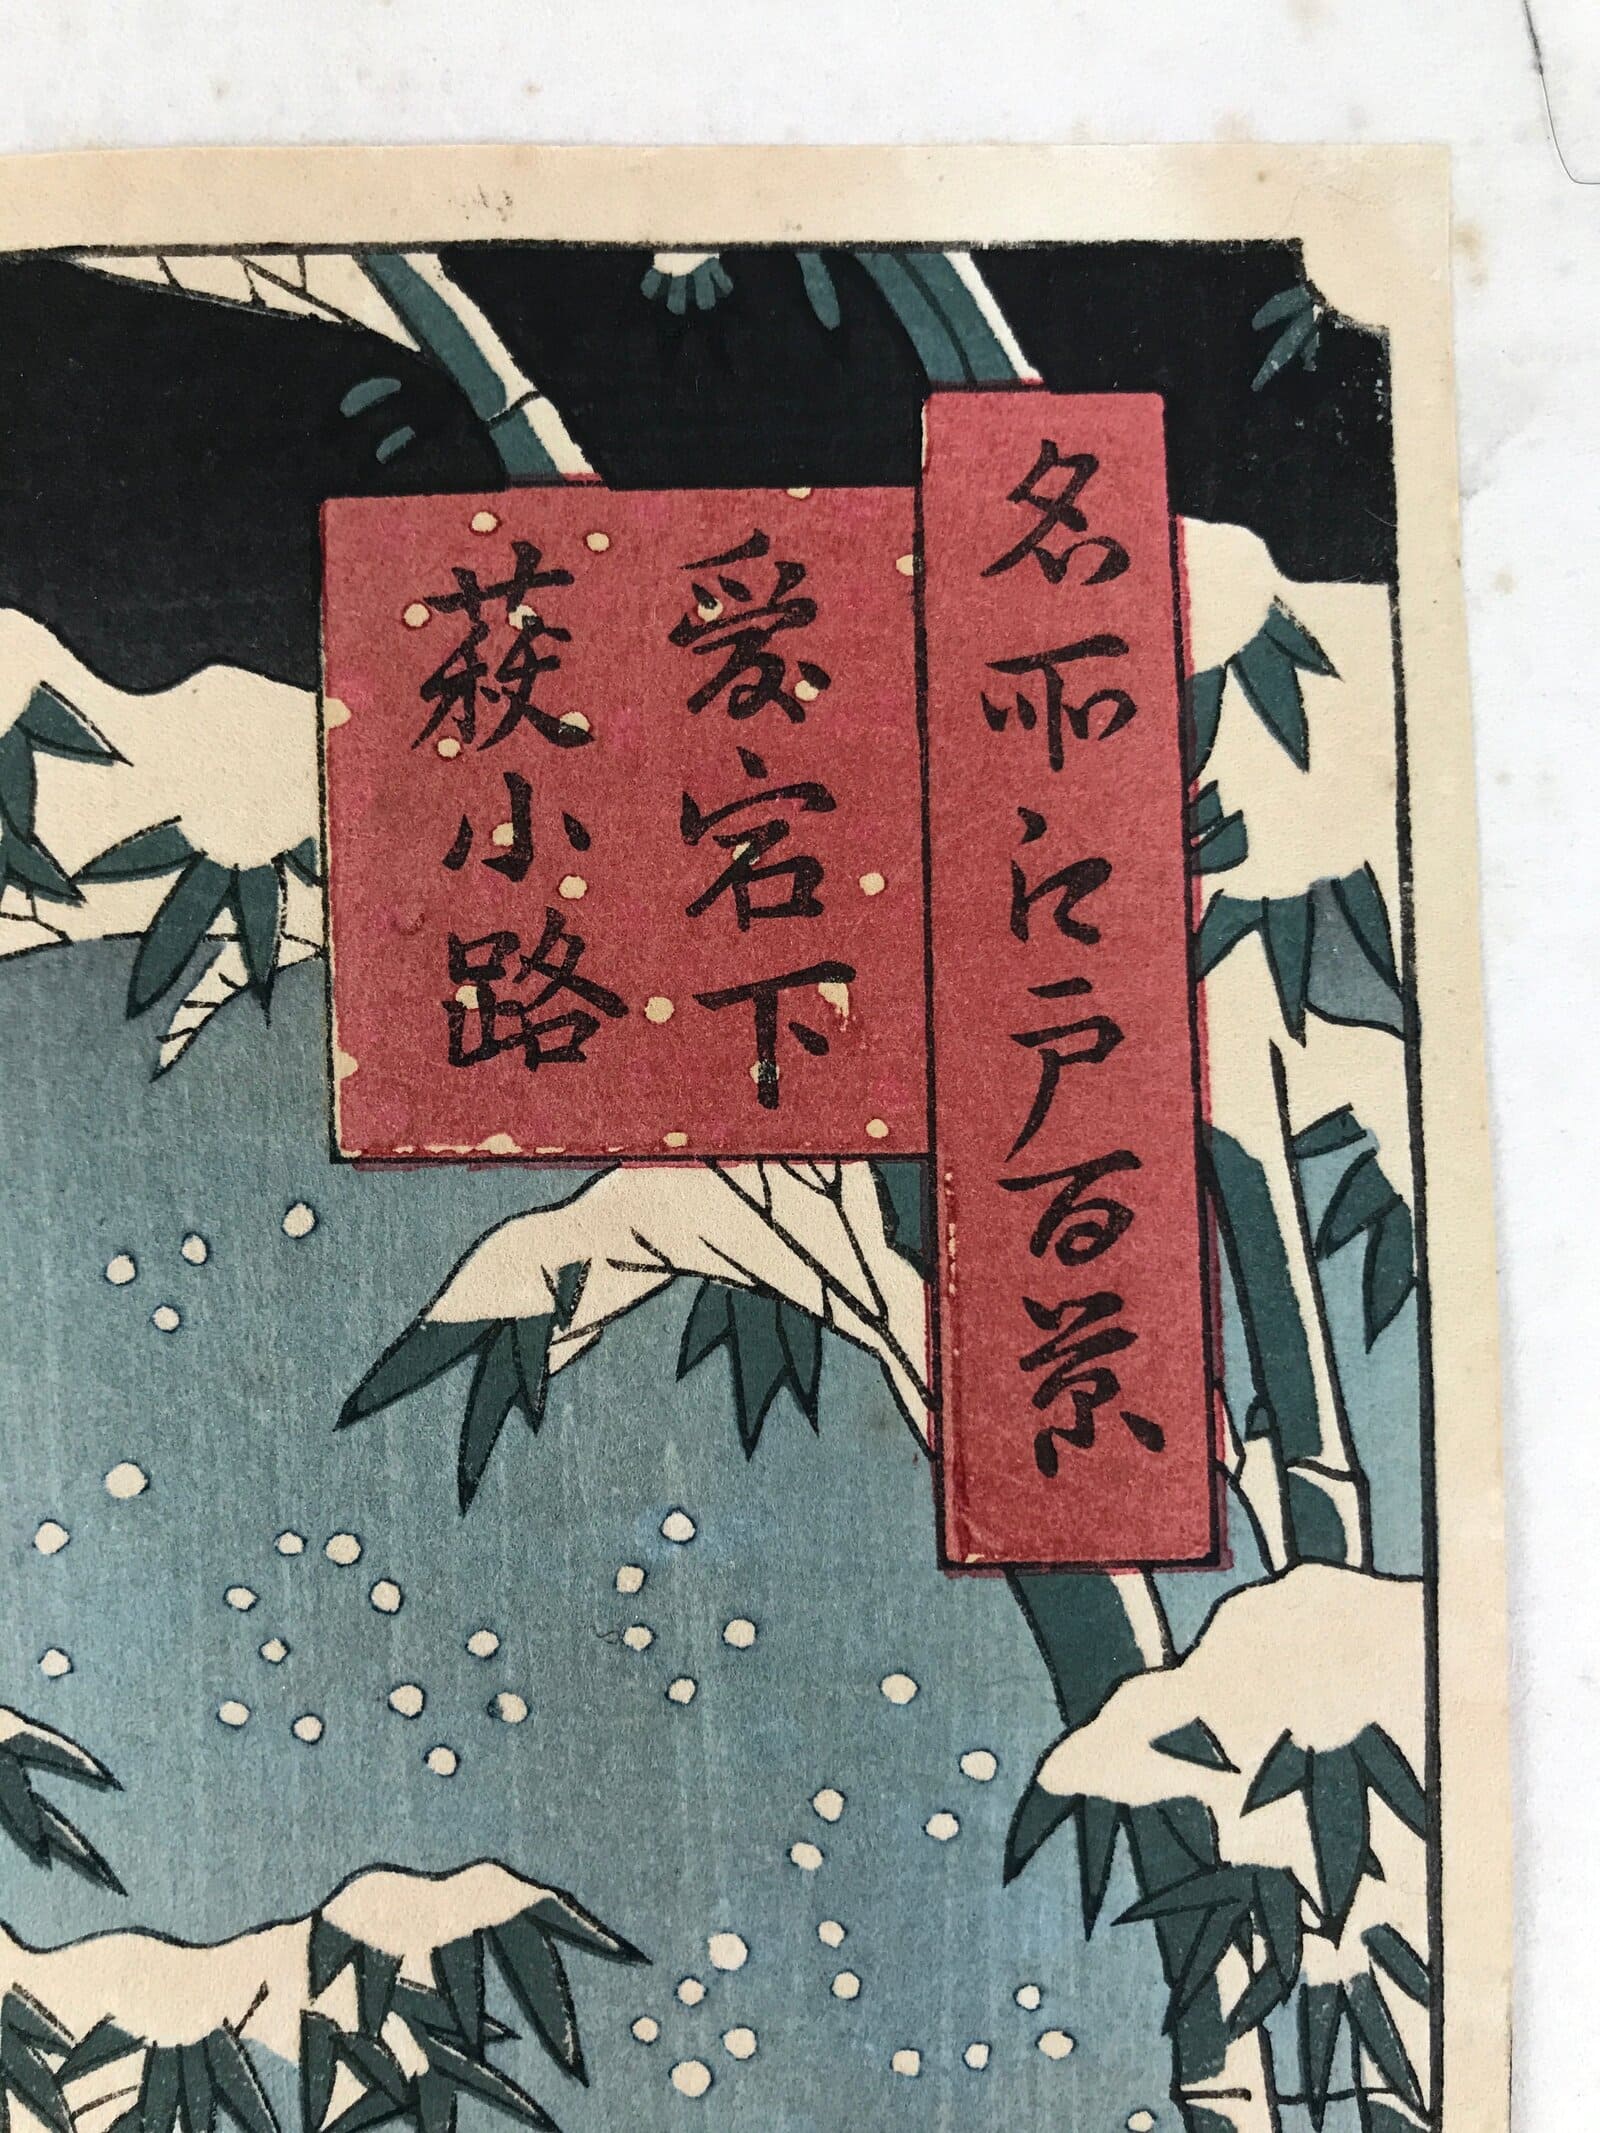 名所江戸百景
愛宕下
藪小路